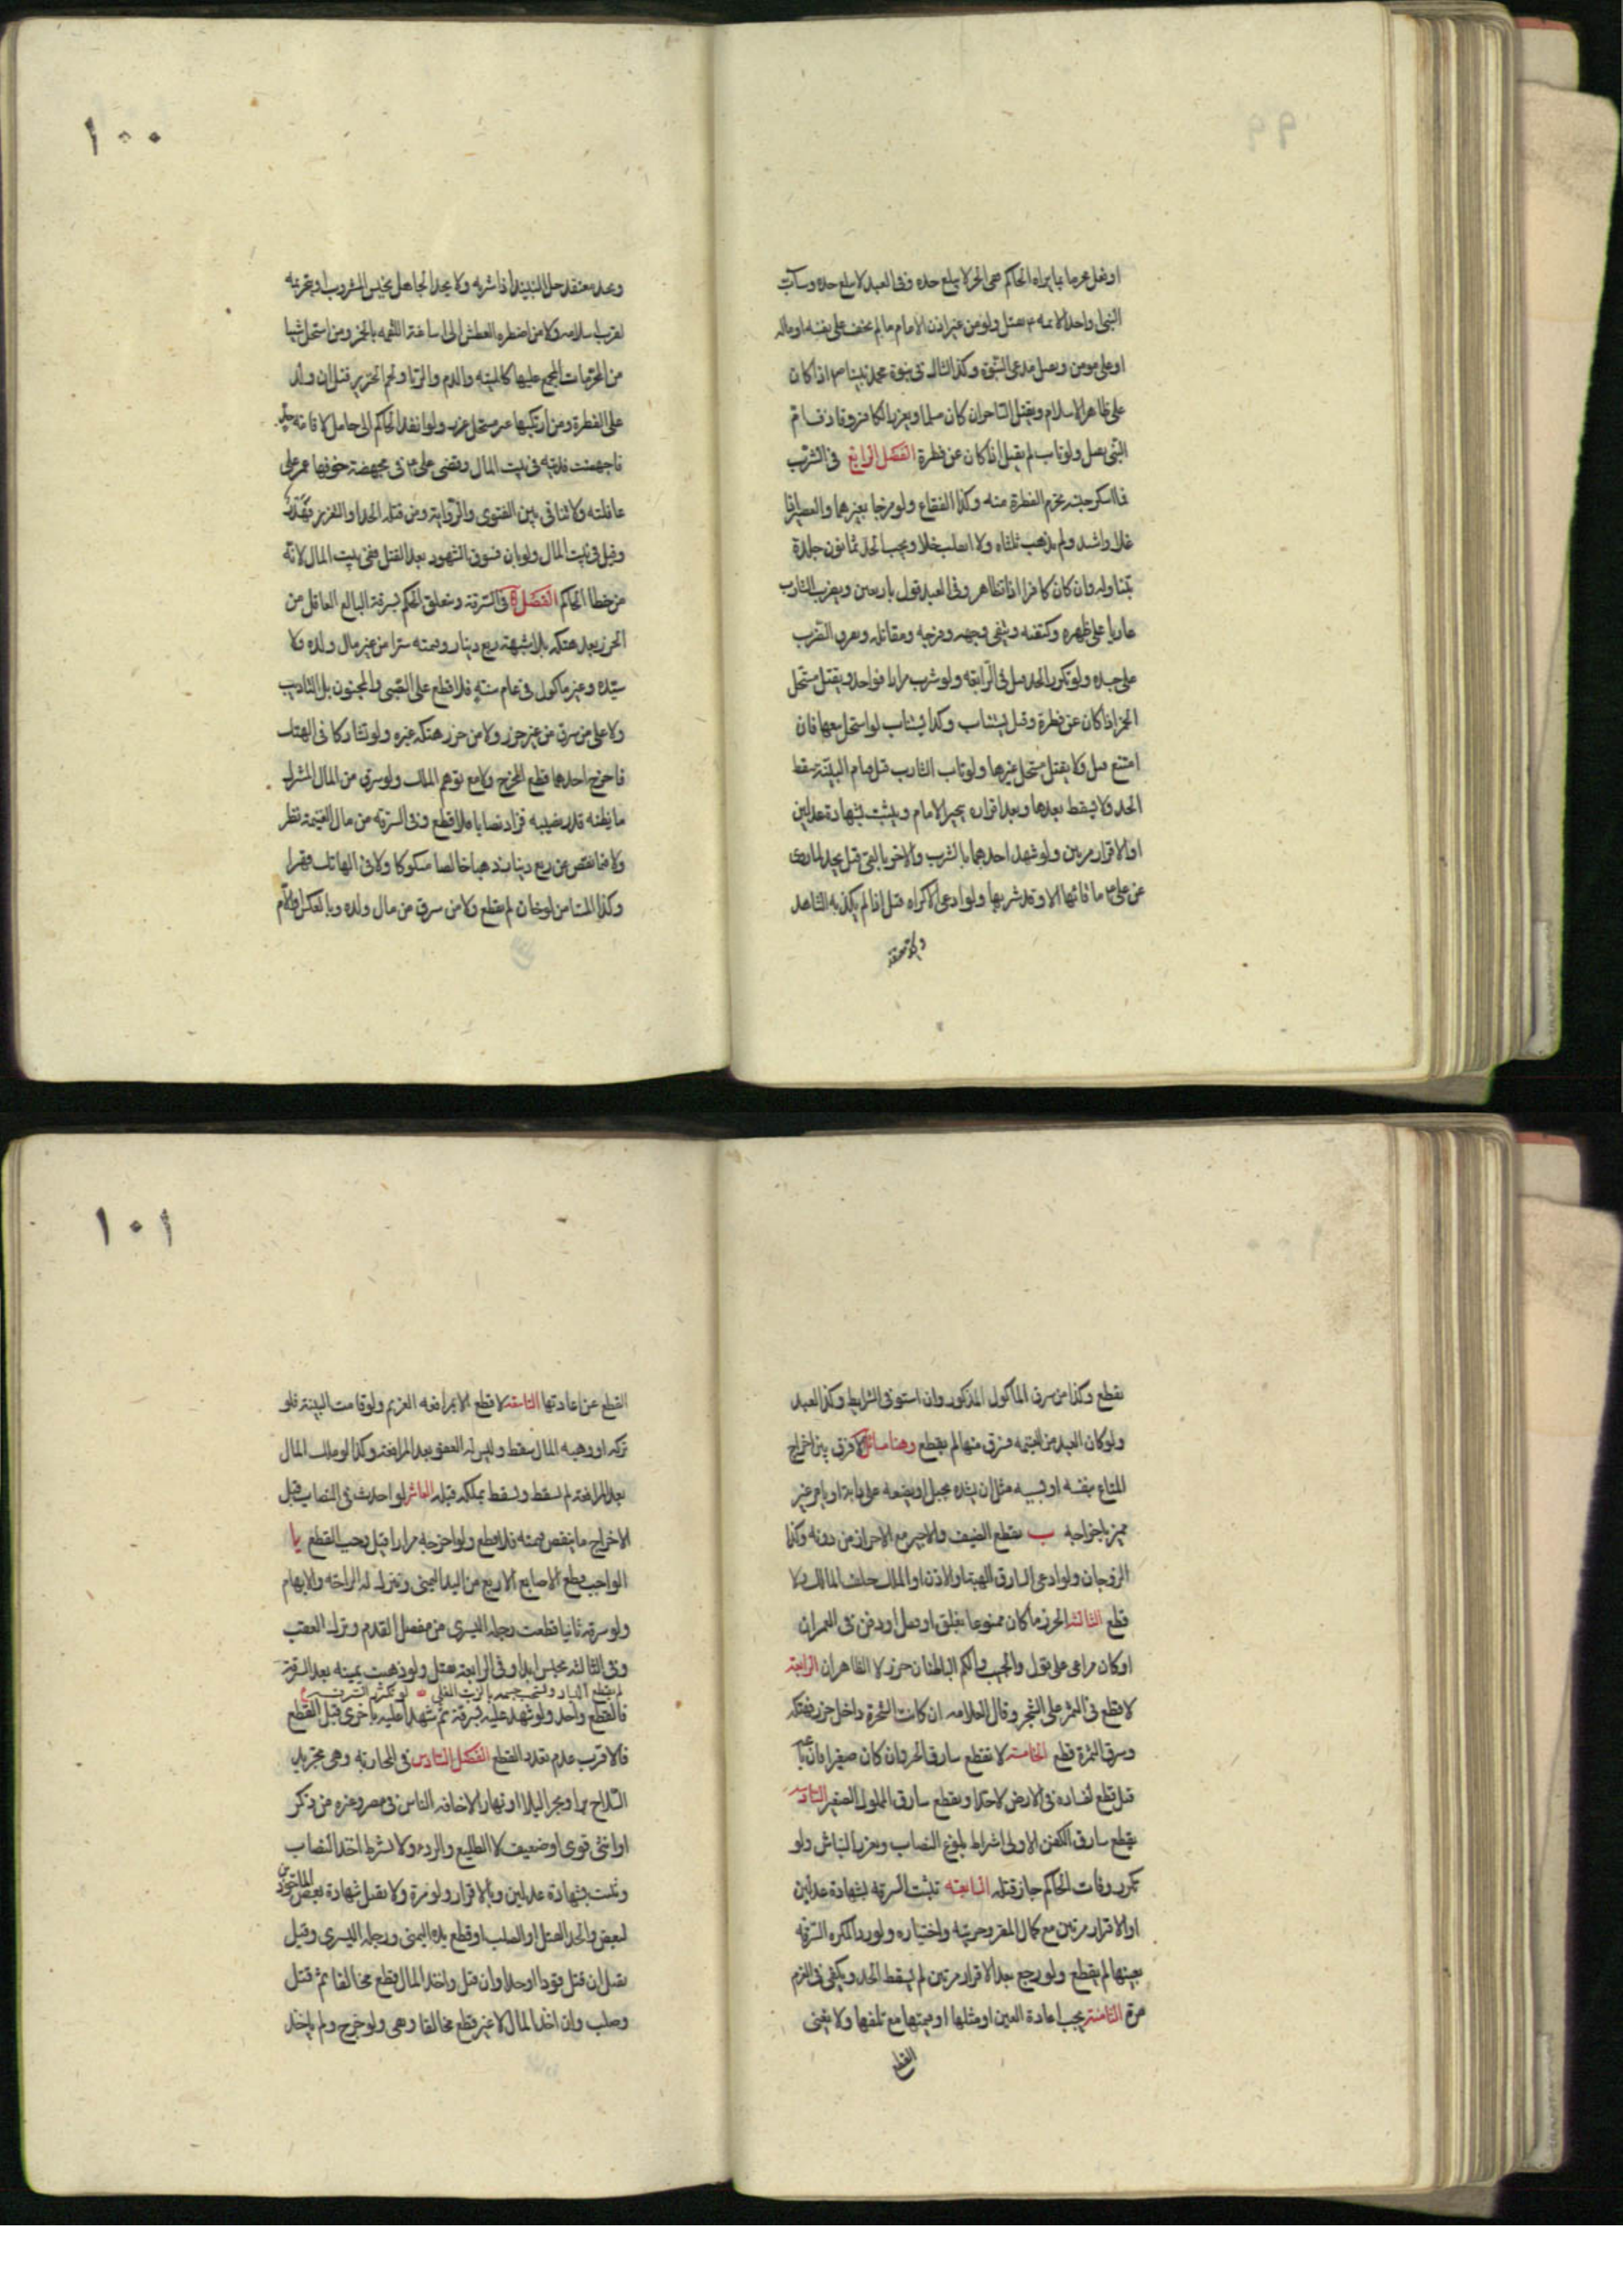 او فعل محرما بما يراه الحاكم ففى الحر لا يبلغ حده وفى العبد لا يبلغ حده وساب
النبى او احد الائمه ع يقتل ولو من غير اذن الامام ما لم يخف على نفسه او ماله
او على مومن ويقتل مدعى النبوة وكذا الشاك فى نبوة محمد نبينا ص اذا كان
على ظاهر الاسلام ويقتل الساحر ان كان مسلما ويعزر الكافر وقاذف ام
النبى يقتل ولو تاب لم يقبل اذا كان عن فطرة الفصل الرابع فى الشرب
فما اسكر جنسه يحرم القطرة منه وكذا الفقاع ولو مزجا بغيرهما والعصير اذا
غلا واشتد ولم يذهب ثلثاه ولا انقلب خلا ويجب الحد ثمانون جلدة
بتناوله وان كان كافرا اذا تظاهر وفى العبد قول باربعين ويضرب الشارب
عاريا على ظهره وكتفه ويتقى وجهه وفرجه ومقاتله ويفرق الضرب
على جسده ولو تكرر الحد قتل فى الرابعة ولو شرب مرارا فواحد ويقتل مستحل
الخمر اذا كان عن فطرة وقيل يستتاب وكذا يستتاب لو استحل بيعها فان
امتنع قتل ولا يقتل مستحل غيرها ولو تاب الشارب قبل قيام البينة سقط
الحد ولا يسقط بعدها وبعد اقراره يتخير الامام ويثبت بشهادة عدلين
او الاقرار مرتين ولو شهد احدهما بالشرب والاخر بالقئ قيل يحد لما روى
عن على ع ما قائها الا وقد شربها ولو ادعى الاكراه قبل اذا لم يكذبه الشاهد
١٠٠
ويحد معتقد حل النبيذ اذا شربه ولا يحد الجاهل بجنس المشروب او بتحريمه
لقرب اسلامه ولا من اضطره العطش الى اساغة اللقمه بالخمر ومن استحل شيئا
من المحرمات المجمع عليها كالميته والدم والربا ولحم الخنزير قتل ان ولد
على الفطرة ومن ارتكبها غير مستحل عزر ولو انفذ الحاكم الى حامل لاقامة حد
فاجهضت فديته فى بيت المال وقضى على ع فى مجهضة خوفها عمر على
عاقلته ولا تنافى بين الفتوى والرواية ومن قتله الحد او التعزير فهدر
وقيل فى بيت المال ولو بان فسوق الشهود بعد القتل ففى بيت المال لانه
من خطا الحاكم الفصل ۵ فى السرقة ويتعلق الحكم بسرقة البالغ العاقل من
الحرز بعد هتكه بلا شبهة ربع دينار او قيمته سرا من غير مال ولده ولا
سيده وغير ماكول فى عام سنة فلا قطع على الصبى والمجنون بل التاديب
ولا على من سرق من غير حرز ولا من حرز هتكه غيره ولو تشاركا فى الهتك
فاخرج احدهما قطع المخرج ولا مع توهم الملك ولو سرق من المال المشترك
ما يظنه قدر نصيبه فزاد نصابا فلا قطع وفى السرقه من مال الغنيمة نظر
ولا فيما نقص عن ربع دينار ذهبا خالصا مسكوكا ولا فى الهاتك قهرا
وكذا المستامن لو خان لم يقطع ولا من سرق من مال ولده وبالعكس او الام
يقطع وكذا من سرق الماكول المذكور وان استوفى الشرايط وكذا العبد
ولو كان العبد من الغنيمه فسرق منها لم يقطع وهنا مسائل لا فرق بين اخراج
المتاع بنفسه او بسببه مثل ان يشده بحبل او يضعه على دابة او يامر غير
مميز باخراجه ب يقطع الضيف والاجير مع الاحراز من دونه وكذا
الزوجان ولو ادعى السارق الهبة او الاذن او الملك حلف المالك ولا
قطع الثالثة الحرز ما كان ممنوعا بغلق او قفل او دفن فى العمران
او كان مراعى على قول والجيب والكم الباطنان حرز لا الظاهران الرابعة
لا قطع فى الثمر على الشجر وقال العلامه ان كانت الشجرة داخل حرز فهتكه
وسرق الثمرة قطع الخامسة لا يقطع سارق الحر وان كان صغيرا فان باعه
قيل قطع لفساده فى الارض لا حدا ويقطع سارق المملوك الصغير السادسه
يقطع سارق الكفن الاولى اشتراط بلوغ النصاب ويعزر النباش ولو
تكرر وفات الحاكم جاز قتله السابعة تثبت السرقه بشهادة عدلين
او الاقرار مرتين مع كمال المقر وحريته واختياره ولو رد المكره السرقه
بعينها لم يقطع ولو رجع بعد الاقرار مرتين لم يسقط الحد ويكفى فى الغرم
مرة الثامنة يجب اعادة العين او مثلها او قيمتها مع تلفها ولا يغنى
القطع
١٠١
القطع عن اعادتها التاسعة لا قطع الا بمرافعه الغريم ولو قامت البينة فلو
تركه او وهبه المال سقط وليس له العفو بعد المرافعة وكذا لو ملك المال
بعد المرافعة لم يسقط ويسقط بملكه قبله العاشر لو احدث فى النصاب قبل
الاخراج ما ينقص قيمته فلا قطع ولو اخرجه مرارا قيل وجب القطع يا
الواجب قطع الاصابع الاربع من اليد اليمنى ويترك له الراحة والابهام
ولو سرق ثانيا قطعت رجله اليسرى من مفصل القدم ويترك العقب
وفى الثالثه يحبس ابدا وفى الرابعة يقتل ولو ذهبت يمينه بعد السرقة
لم يقطع اليسار ويستحب حسمه بالزيت المغلى ولو تكررت السرقة
فالقطع واحد ولو شهدا عليه بسرقة ثم شهدا عليه باخرى قبل القطع
فالاقرب عدم تعدد القطع الفصل السادس فى المحاربة وهى تجريد
السلاح برا او بحرا ليلا او نهارا لاخافه الناس فى مصر وغيره من ذكر
او انثى قوى او ضعيف لا الطليع والردء ولا يشترط اخذ النصاب
ويثبت بشهادة عدلين وبالاقرار ولو مرة ولا تقبل شهادة بعض الماخوذين
لبعض والحد القتل او الصلب او قطع يده اليمنى ورجله اليسرى وقيل
يقتل ان قتل قودا او حدا وان قتل واخذ المال قطع مخالفا ثم قتل
وصلب وان اخذ المال لا غير قطع مخالفا ونفى ولو جرح ولم ياخذ